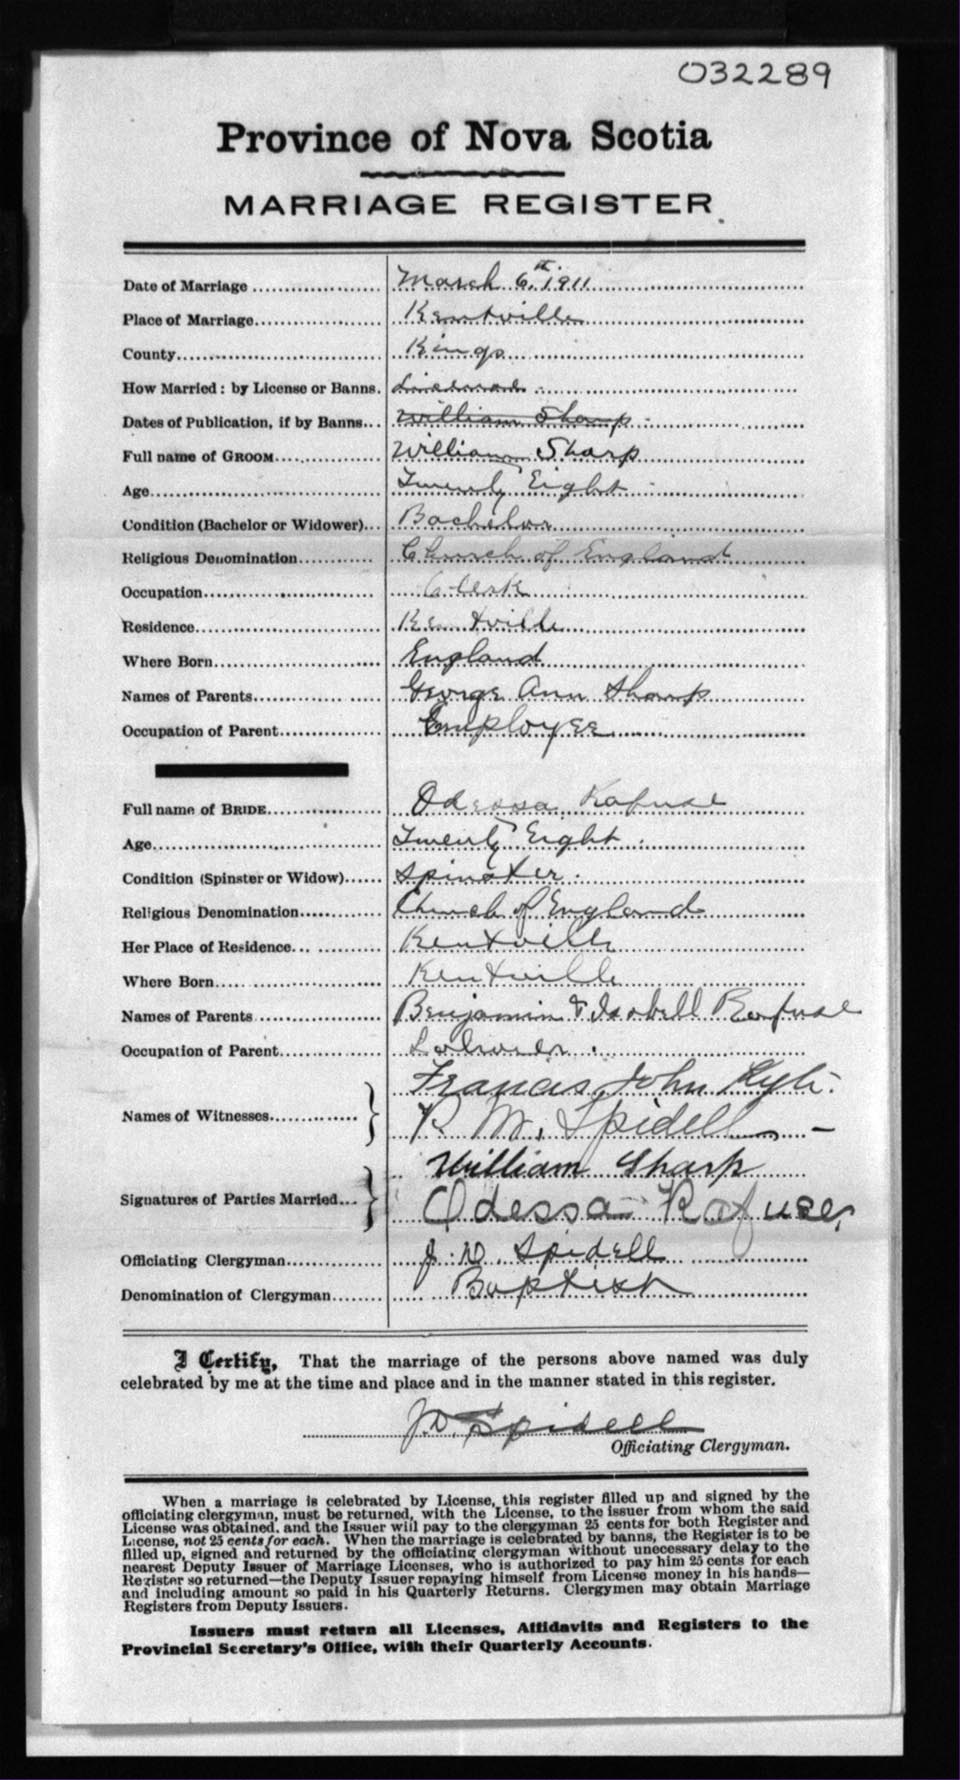 032289
Province of Nova Scotia
MARRIAGE REGISTER
Date of Marriage ... March 6th 1911
Place of Marriage ... Kentville
County ... Kings
How Married: by License or Banns. License
Dates of Publication, if by Banns... William Sharp
Full name of GROOM ... William Sharp
Age ... Twenty Eight
Condition (Bachelor or Widower)... Bachelor
Religious Denomination ... Church of England
Occupation ... Clerk
Residence ... Kentville
Where Born ... England
Names of Parents ... George Ann Sharp
Occupation of Parent ... Employee
Full name of BRIDE ... Odessa Rafuse
Age ... Twenty Eight
Condition (Spinster or Widow) ... Spinster
Religious Denomination ... Church of England
Her Place of Residence ... Kentville
Where Born ... Kentville
Names of Parents ... Benjamin & Isabell Rafuse
Occupation of Parent ... Laborer
Francis John
Names of Witnesses ... } R M. Spidell
William Sharp
Signatures of Parties Married... } Odessa Rafuse
Officiating Clergyman ... J. D. Spidell
Denomination of Clergyman ... Baptist
I Certify, That the marriage of the persons above named was duly
celebrated by me at the time and place and in the manner stated in this register.
J. D. Spidell
Officiating Clergyman.
When a marriage is celebrated by License, this register filled up and signed by the
officiating clergyman, must be returned, with the License, to the issuer from whom the said
License was obtained. and the Issuer will pay to the clergyman 25 cents for both Register and
License, not 25 cents for each. When the marriage is celebrated by banns, the Register is to be
filled up, signed and returned by the officiating clergyman without unecessary delay to the
nearest Deputy Issuer of Marriage Licenses, who is authorized to pay him 25 cents for each
Register so returned—the Deputy Issuer repaying himself from License money in his hands—
and including amount so paid in his Quarterly Returns. Clergymen may obtain Marriage
Registers from Deputy Issuers.
Issuers must return all Licenses, Affidavits and Registers to the
Provincial Secretary's Office, with their Quarterly Accounts.